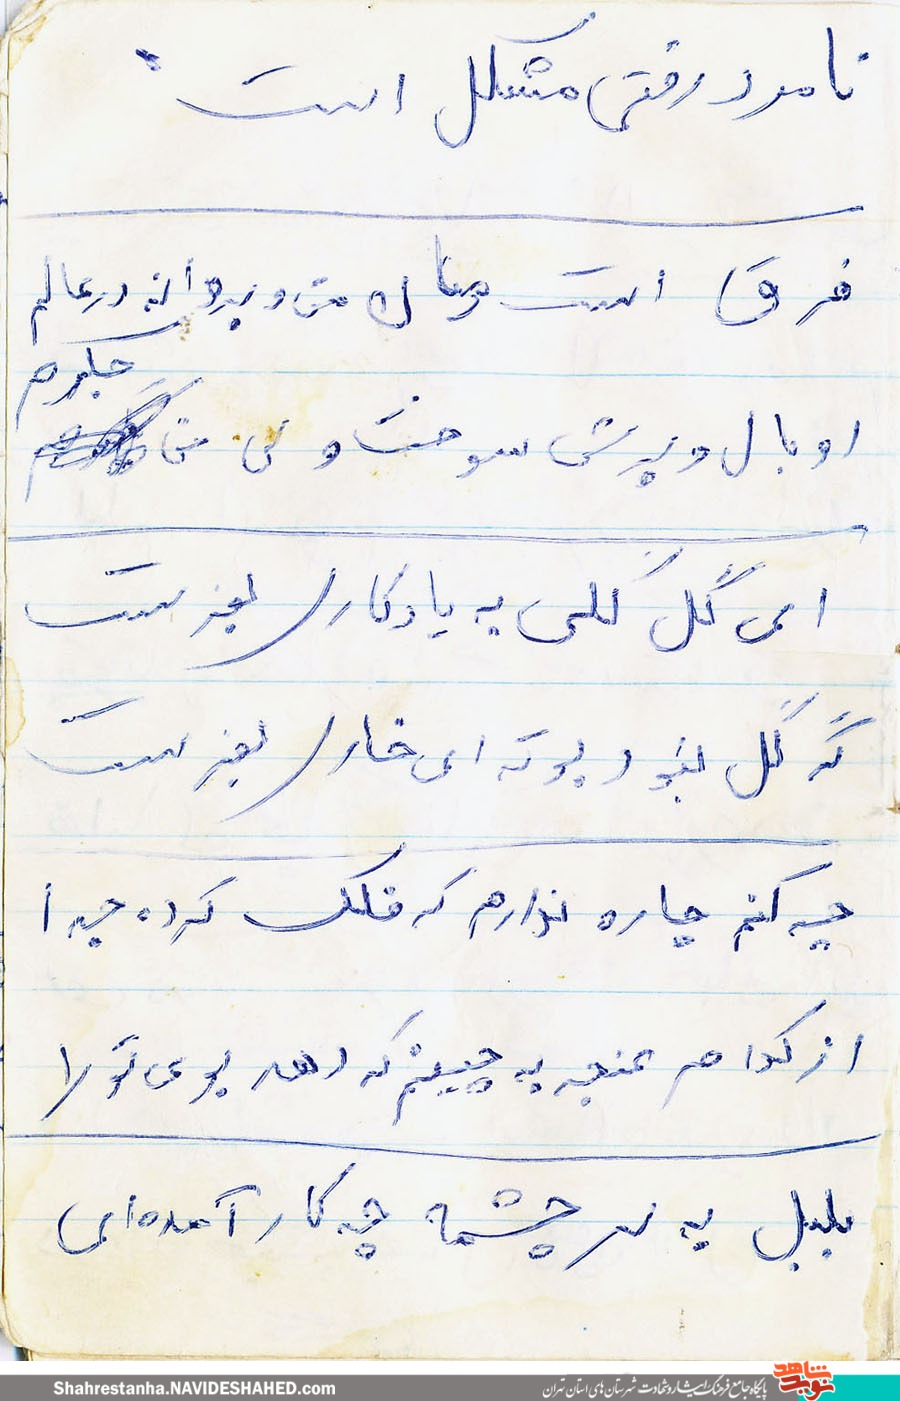 نامرد رفتی مشکل است
فرق است میان من و پروانه در عالم
او بال و پرش سوخت ولی من جگرم
ای گل گلی به یادگار بفرست
گر گل نبود بوته ای خار بفرست
چه کنم چاره ندارم که فلک کرده جدا
از کدام غنچه به چینم که دهد بوی تو را
بلبل به سر چشمه چه کار آمده ای
Shahrestanha.NAVIDESHAHED.com
پایگاه جامع فرهنگ ایثار و شهادت شهرستان های استان تهران
نوید شاهد